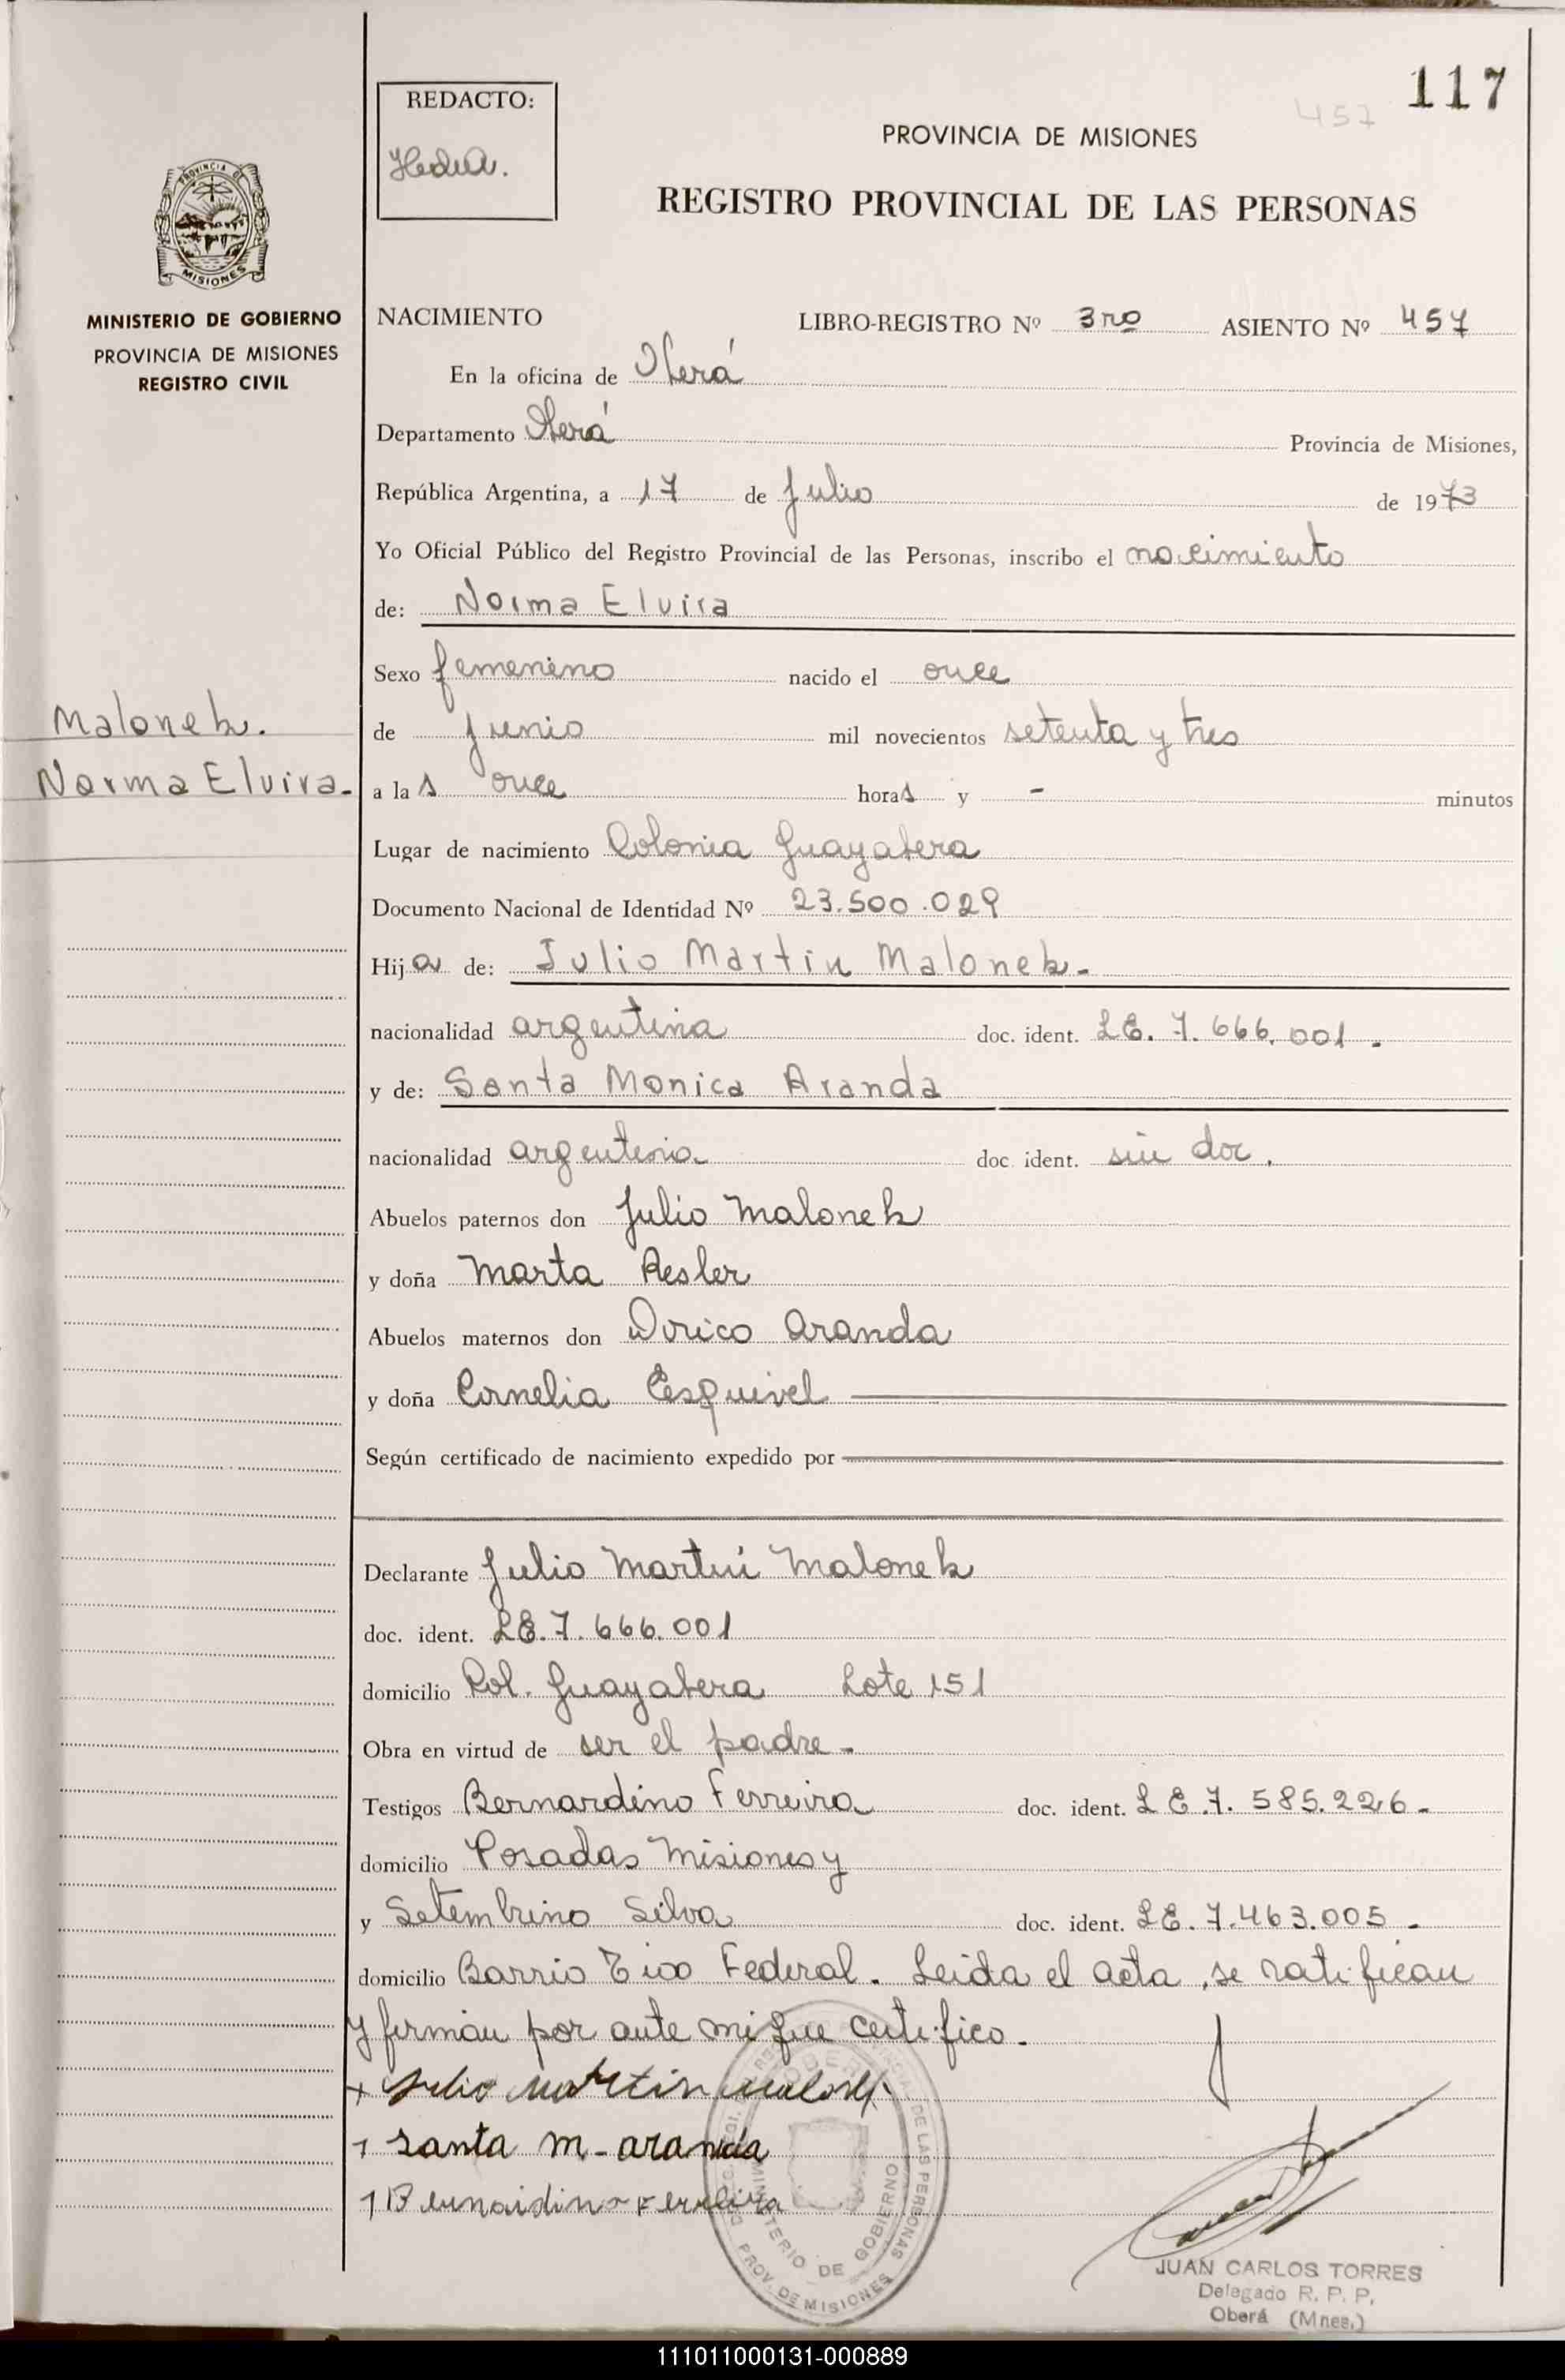 117
457
REDACTO:
PROVINCIA DE MISIONES
REGISTRO PROVINCIAL DE LAS PERSONAS
PROVINCIA DE
MISIONES
MINISTERIO DE GOBIERNO
PROVINCIA DE MISIONES
REGISTRO CIVIL
NACIMIENTO LIBRO-REGISTRO Nº 3ro ASIENTO Nº 457
En la oficina de Oberá
Departamento Oberá Provincia de Misiones,
República Argentina, a 17 de Julio de 1973
Yo Oficial Público del Registro Provincial de las Personas, inscribo el nacimiento
de: Norma Elvira
Sexo femenino nacido el once
Malonek.
de junio mil novecientos setenta y tres
Norma Elvira.-
a las once horas y - minutos
Lugar de nacimiento Colonia Guayabera
Documento Nacional de Identidad Nº 23.500.029
Hija de: Julio Martin Malonek.-
nacionalidad argentina doc. ident. LE. 7.666.001.
y de: Santa Monica Aranda
nacionalidad argentina doc. ident. sin doc.
Abuelos paternos don Julio Malonek
y doña Marta Resler
Abuelos maternos don Dorico Aranda
y doña Cornelia Esquivel
Según certificado de nacimiento expedido por
Declarante Julio Martin Malonek
doc. ident. LE. 7.666.001
domicilio Col. Guayabera Lote 151
Obra en virtud de ser el padre.-
Testigos Bernardino Ferreira doc. ident. LE. 7.585.226.-
domicilio Posadas Misiones y
y Setembrino Silva doc. ident. LE. 7.463.005.-
domicilio Barrio Tiro Federal. Leida el acta, se ratifican
y firman por ante mi que certifico.-
+ Julio Martin Malonek
1 Santa M. aranda
1 Bernardino Ferreira
MINISTERIO DE GOBIERNO
PROV. DE MISIONES
DE LAS PERSONAS
JUAN CARLOS TORRES
Delegado R. P. P.
Oberá (Mnes.)
111011000131-000889